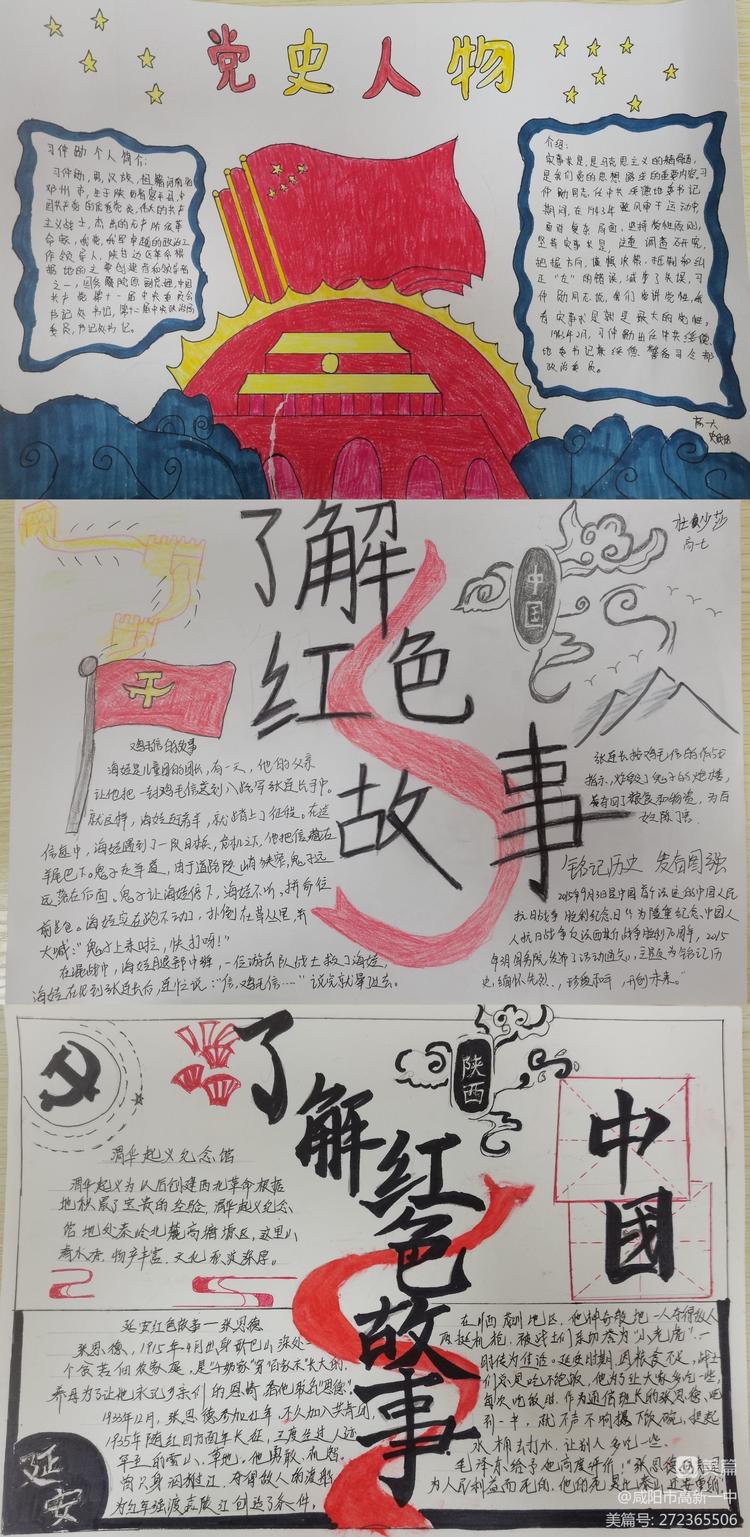 党史人物
习仲勋个人简介:
习仲勋,男,汉族,祖籍河南省
邓州市,生于陕西省富平县,中
国共产党的优秀党员,伟大的共产
主义战士,杰出的无产阶级革
命家,我党、我军卓越的政治工
作领导人,陕甘边区革命根
据地的主要创建者和领导者
之一,国务院原副总理,中国
共产党第十一届中央委员会
书记处书记,第十二届中央政治局
委员,书记处书记。
介绍:
实事求是,是马克思主义的精髓,
是我们党的思想路线的重要内容,习
仲勋同志,任中共绥德地委书记
期间,在1943年整风审干运动中,
面对复杂局面,坚持党性原则,
坚持实事求是,注重调查研究,
把握方向,慎重决策,抵制和纠
正“左”的错误,减少了失误,习
仲勋同志说,我们党讲党性,我
看实事求是就是最大的党性。
1943年2月,习仲勋出任中共绥德
地委书记兼绥德警备司令部
政治委员。
了解
红色
故事
中国
高一七
鸡毛信的故事
海娃是儿童团的团长,有一天,他的父亲
让他把一封鸡毛信送到八路军张连长手中。
就这样,海娃赶着羊,就踏上了征程。在送
信途中,海娃遇到了一队日本兵,危机之下,他把信藏在
羊尾巴下。
远落在后面,鬼子让海娃停下,海娃不听,拼命往
前跑。海娃实在跑不动了,扑倒在草丛里,并
大喊:“鬼子上来啦,快打呀!”
在混战中,海娃的腿部中弹,一位游击队战士救了海娃,
海娃在见到张连长后,连忙说:“信,鸡毛信……”说完就晕过去。
张连长按鸡毛信的作战
指示,炸毁了鬼子的炮楼,
并夺回了粮食和物资,为百
姓除了害。
铭记历史 发奋图强
2015年9月3日是中国首个法定的中国人民
抗日战争胜利纪念日,作为隆重纪念中国人
人抗日战争及法西斯战争胜利70周年,2015
年3月国务院发布了活动通知,主题为铭记历
史,缅怀先烈、珍爱和平、开创未来。”
了解红色故事
陕西
中国
渭华起义纪念馆
渭华起义为以后创建西北革命根据
地积累了宝贵的经验,渭华起义纪念
馆地处秦岭北麓高塘塬区,这里山
清水秀,物产丰富,文化底蕴深厚。
延安红色故事—张思德
张思德,1915年4月出身于大巴山深处一
个贫苦佃农家庭,是“千奶家”“百家衣”长大的,
养母为了让他永记乡亲们的恩情,替他取名“思德”。
1933年12月,张思德参加红军,不久加入共青团,
1935年随红四方面军长征,三度走过人迹
罕至的雪山、草地。他勇敢、机智,
曾只身泅渡江,夺得敌人的渡船,
为红军强渡嘉陵江创造了条件。
在川西茂州地区,他神奇般地把一人夺得敌人
两挺机枪,被战士们亲切称为“小老虎”,一
时传为佳话。延安时期,因粮食不足,战士
们总是吃不饱饭,他为了让大家多吃一些,
每次吃饭时,作为通信班长的张思德,吃
到一半,就不声不响撂下饭碗,提起
水桶去打水,让别人多吃一些。
毛泽东给予他高度评价:“张思德同志是
为人民利益而死的,他的死是比泰山还要重的
延安
美篇
@咸阳市高新一中
美篇号: 272365506